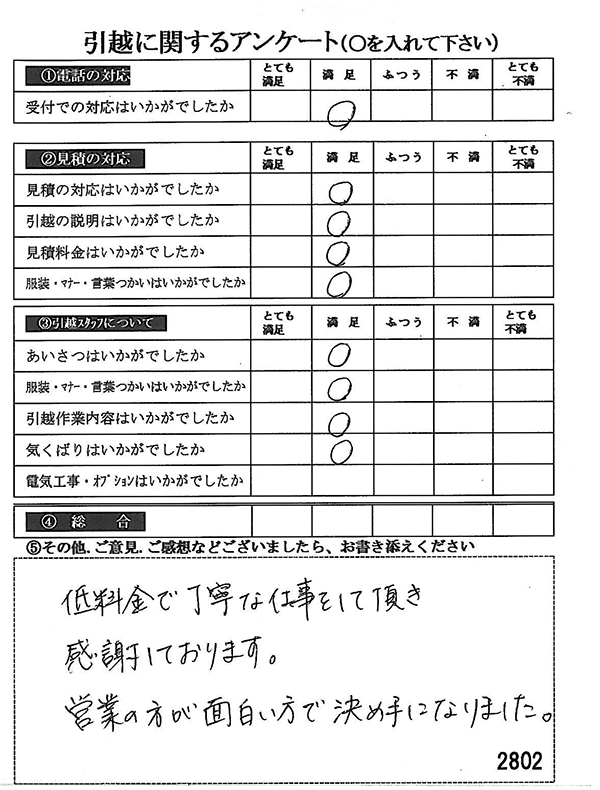 引越に関するアンケート(○を入れて下さい)
①電話の対応 とても満足 満足 ふつう 不満 とても不満
受付での対応はいかがでしたか ○
②見積の対応 とても満足 満足 ふつう 不満 とても不満
見積の対応はいかがでしたか ○
引越の説明はいかがでしたか ○
見積料金はいかがでしたか ○
服装・マナー・言葉つかいはいかがでしたか ○
③引越スタッフについて とても満足 満足 ふつう 不満 とても不満
あいさつはいかがでしたか ○
服装・マナー・言葉つかいはいかがでしたか ○
引越作業内容はいかがでしたか ○
気くばりはいかがでしたか ○
電気工事・オプションはいかがでしたか
④ 総 合
⑤その他.ご意見.ご感想などございましたら、お書き添えください
低料金で丁寧な仕事をして頂き
感謝しております。
営業の方が面白い方で決め手になりました。
2802